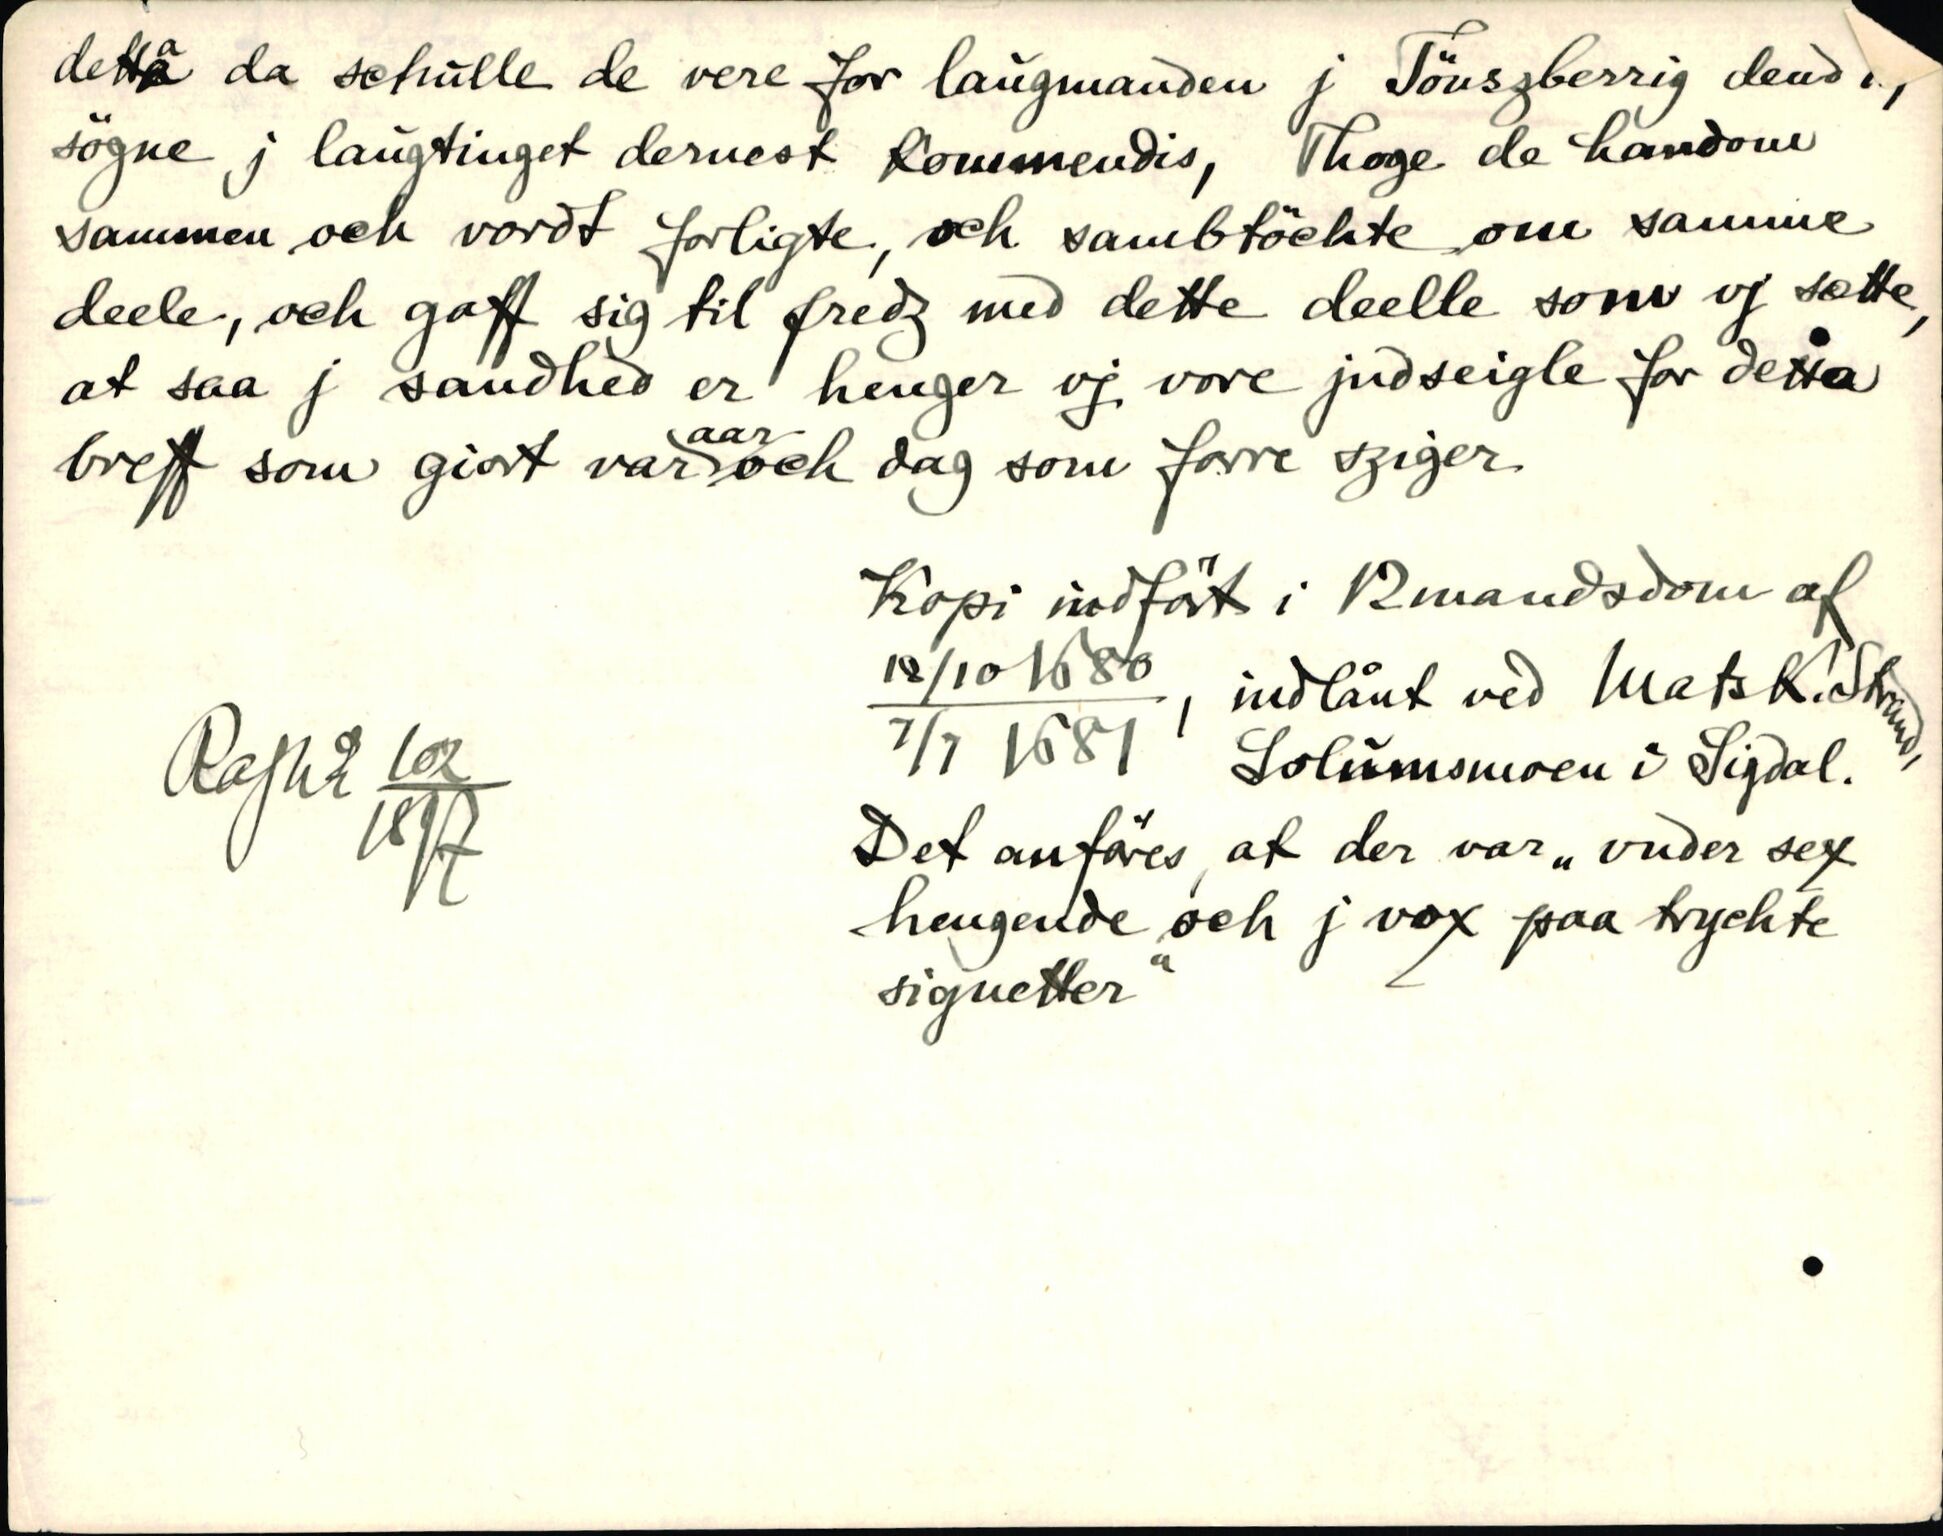 detta da schulle de vere for laugmanden j Tönszberrig dend
sögne j laugtinget dernest kommendis, Thoge de handom
sammen och vordt forligte, och sambtöchte om samme
deele, och gaff sig til fredz med dette deelle som vj sette,
at saa j sandhed er henger vj vore jndseigle for detta
breff som giort var aar och dag som forre sziger.
Kopi indfört i 12mandsdom af
12/10 1680
7/7 1681, indlånt ved Mats K. Strand,
Solumsmoen i Sigdal.
102
1897
Det anföres, at der var „vnder sex
hengende och j vox paa trychte
signetter“